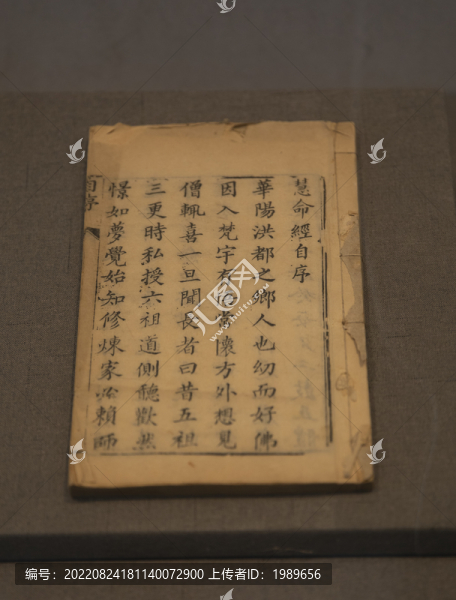 慧命經自序
華陽洪都之鄉人也幼而好佛
因入梵宇有悟常懷方外想見
僧輒喜一旦聞長者曰昔五祖
三更時私授六祖道側聽歡然
憬如夢覺始知修煉家必賴師
自序
汇图网
www.huitu.com
编号:20220824181140072900 上传者ID:1989656